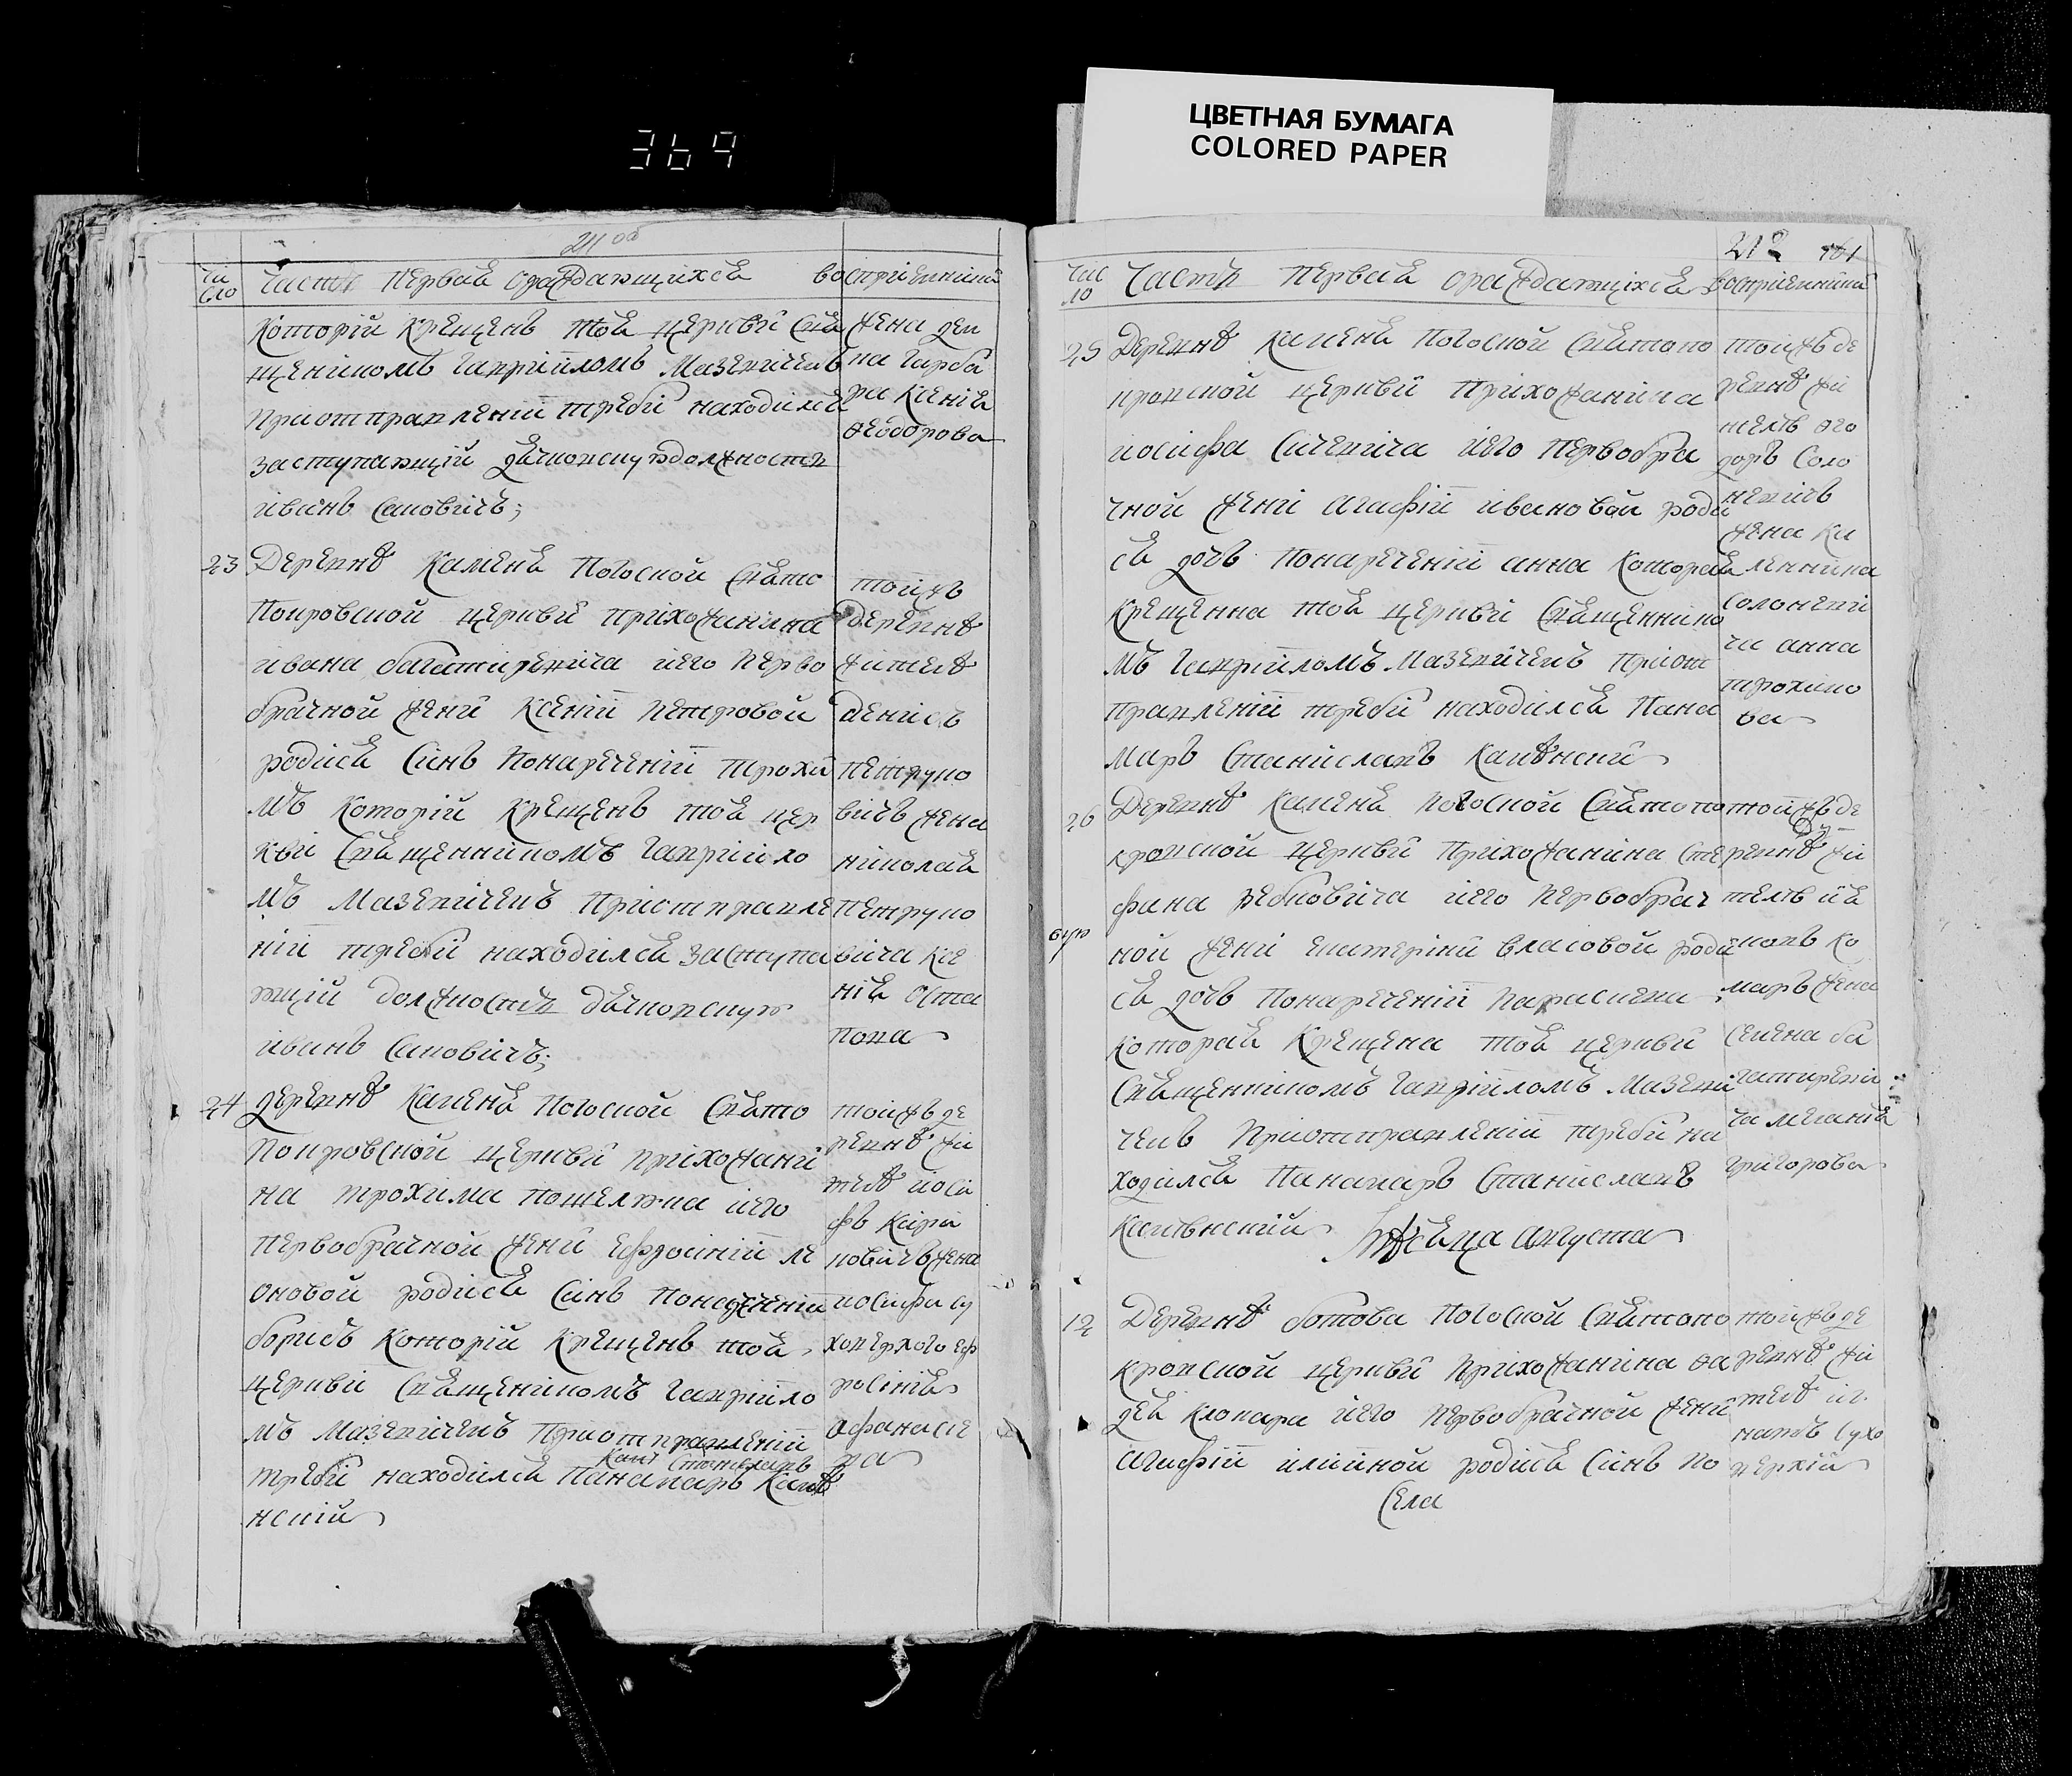 369
ЦВЕТНАЯ БУМАГА
COLORED PAPER
211 об
Чи
сло
Часть первая о раждающихся
восприемники
которій крещенъ тоя церкви свя
щеникомъ Гавриіломъ Мазевичемъ
при отправленіи требы находился
заступающій дячковскую должность
иванъ Сановичъ;
жена Дем
на Гарба
ра Ксенія
Феодорова
23
Деревнѣ Каменя Погосной Свято
Покровской церкви прихожанина
ивана багатиревича иего перво
брачной жени Ксеніи Петровой
родися Синъ понареченіи трохи
мъ Которій Крещенъ тоя цер
кви Священникомъ Гавриіло
мъ Мазевичемъ При отправле
ніи требы находился заступа
ющій должность дячковскую
иванъ Сановичъ;
тойжъ
деревнѣ
житель
денисъ
Петруко
вичъ жена
николая
Петруко
вича Ксе
нія Оста
пова
24
деревнѣ Каменя Погосной Свято
Покровской церкви прихожани
на трохима иего
Первобрачной жени Ефросиніи ле
оновой родися Синъ Понареченіи
борисъ Которій Крещенъ тоя
церкви Священикомъ Гавриіло
мъ Мазевичемъ При отправленіи
требы находился Панамаръ
нскій
тойжъ де
ревнѣ жи
тель иоси
фъ Кири
ковичъ жена
иосифа су
ховерхого Еф
росинія
Афанасіе
ва
212
Чис
ло
Часть первая о раждающихся
восприемники
25
Деревнѣ Каменя Погосной Святопо
кровской церкви Прихожанина
иосифа иего Первобра
чной жени агафіи ивановой роди
ся дочъ Понареченіи анна Которая
Крещенна тоя церкви Священнико
мъ Гавриіломъ Мазевичемъ При от
правленіи требы находился Пана
маръ Станиславъ
тойжъ де
ревнѣ жи
тель Фео
доръ Соло
невичъ
жена Ка
Солоневи
ча анна
трохимо
ва
26
Деревнѣ Каменя Погосной Святопо
кровской церкви Прихожанина Сте
фана Рябковича иего Первобрач
ной жени екатерини власовой роди
ся дочъ Понареченіи Параскева
Которая Крещена тоя церкви
Священникомъ Гавриіломъ Мазеви
чемъ При отправленіи требы на
ходился Панамаръ Станиславъ
тойжъ де
ревнѣ жи
тель ия
ковъ Ко
маръ жена
Семена ба
гатиреви
ча меланія
григорова
Мѣсяца августа
12
Деревнѣ ботова Погосной Святопо
кровской церкви Прихожанина Фа
дея Клокара иего Первобрачной жени
агафіи иліиной родися Синъ По
тойжъ де
ревнѣ жи
тель иг
натъ Сухо
верхій
Села